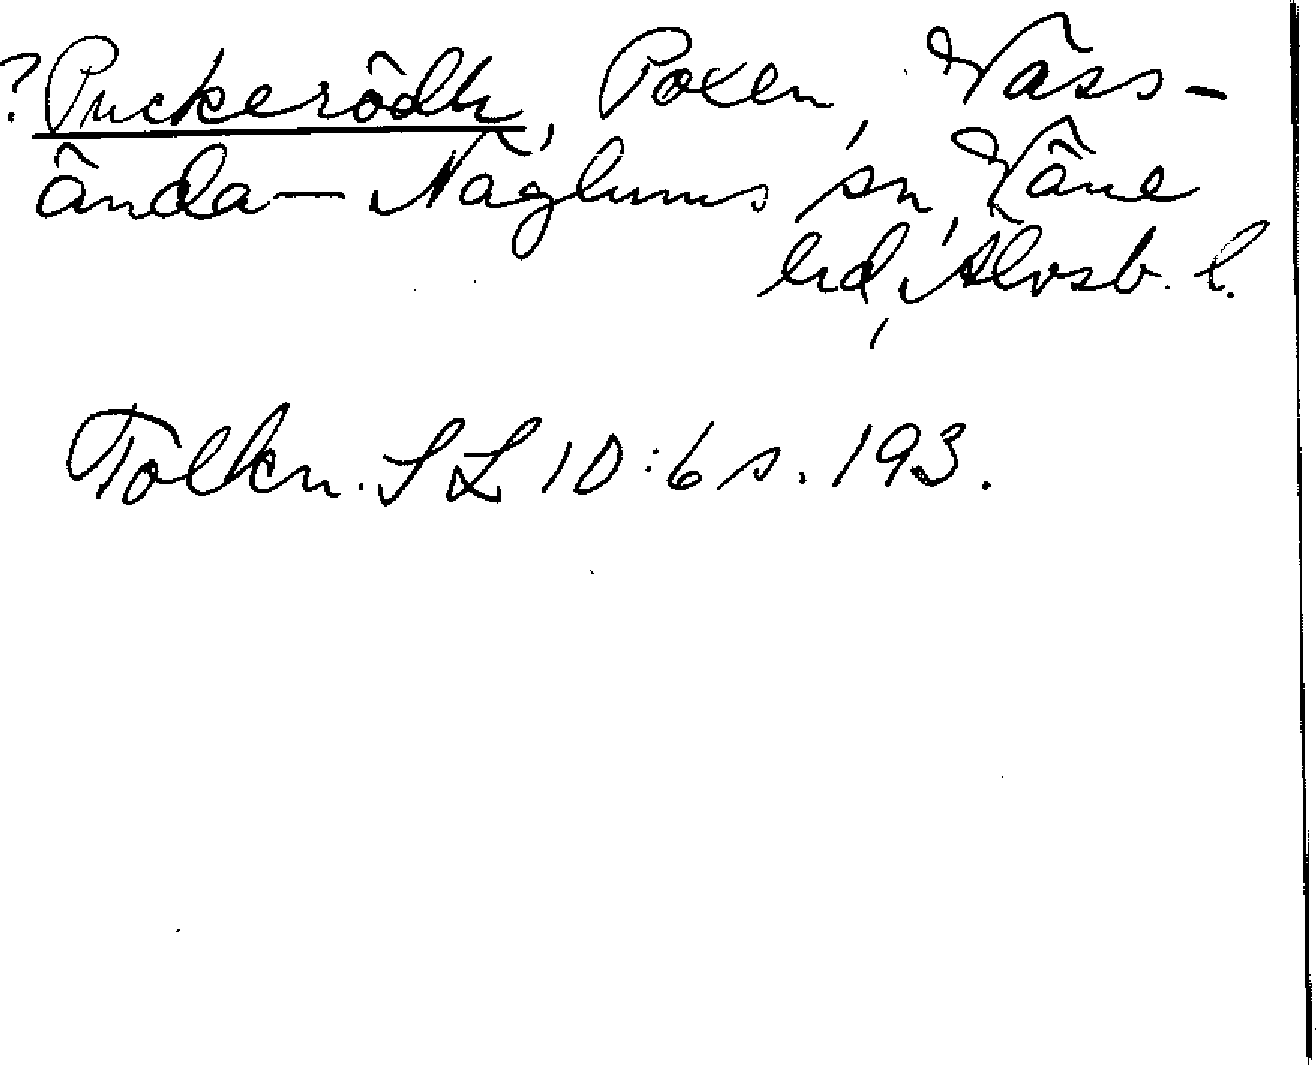 ?Puckerödh, Poxen, Väss-
ända-Näglums sn, Väne
hd, Älvsb. l.
Tolkn. SL 10:6 s. 193.